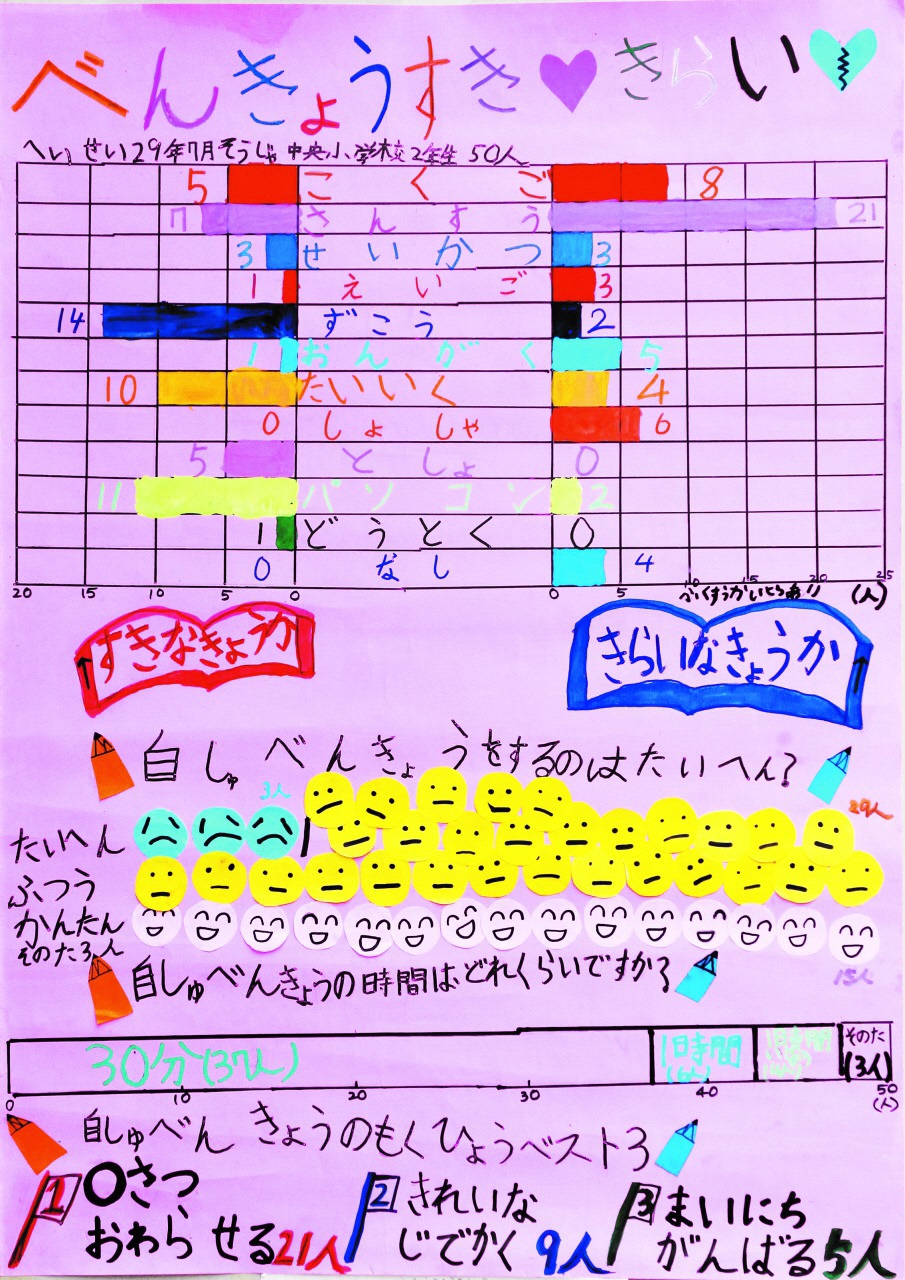 べんきょうすき きらい
へいせい29年7月そうじゃ中央小学校2年生 50人
5 こくご 8
7 さんすう 21
3 せいかつ 3
1 えいご 3
14 ずこう 2
1 おんがく 5
10 たいいく 4
0 しょしゃ 6
5 としょ 0
11 パソコン 2
1 どうとく 0
0 なし 4
20 15 10 5 0 0 5 10 15 20 25
ふくすうかいとうあり (人)
すきなきょうか
きらいなきょうか
自しゅべんきょうをするのはたいへん?
3人
29人
たいへん
ふつう
かんたん
そのた3人
15人
自しゅべんきょうの時間はどれくらいですか?
30分(37人)
1時間
(6人)
そのた
(3人)
0 10 20 30 40 50
(人)
自しゅべんきょうのもくひょうベスト3
1 〇さつ
おわらせる21人
2 きれいな
じでかく 9人
3 まいにち
がんばる5人